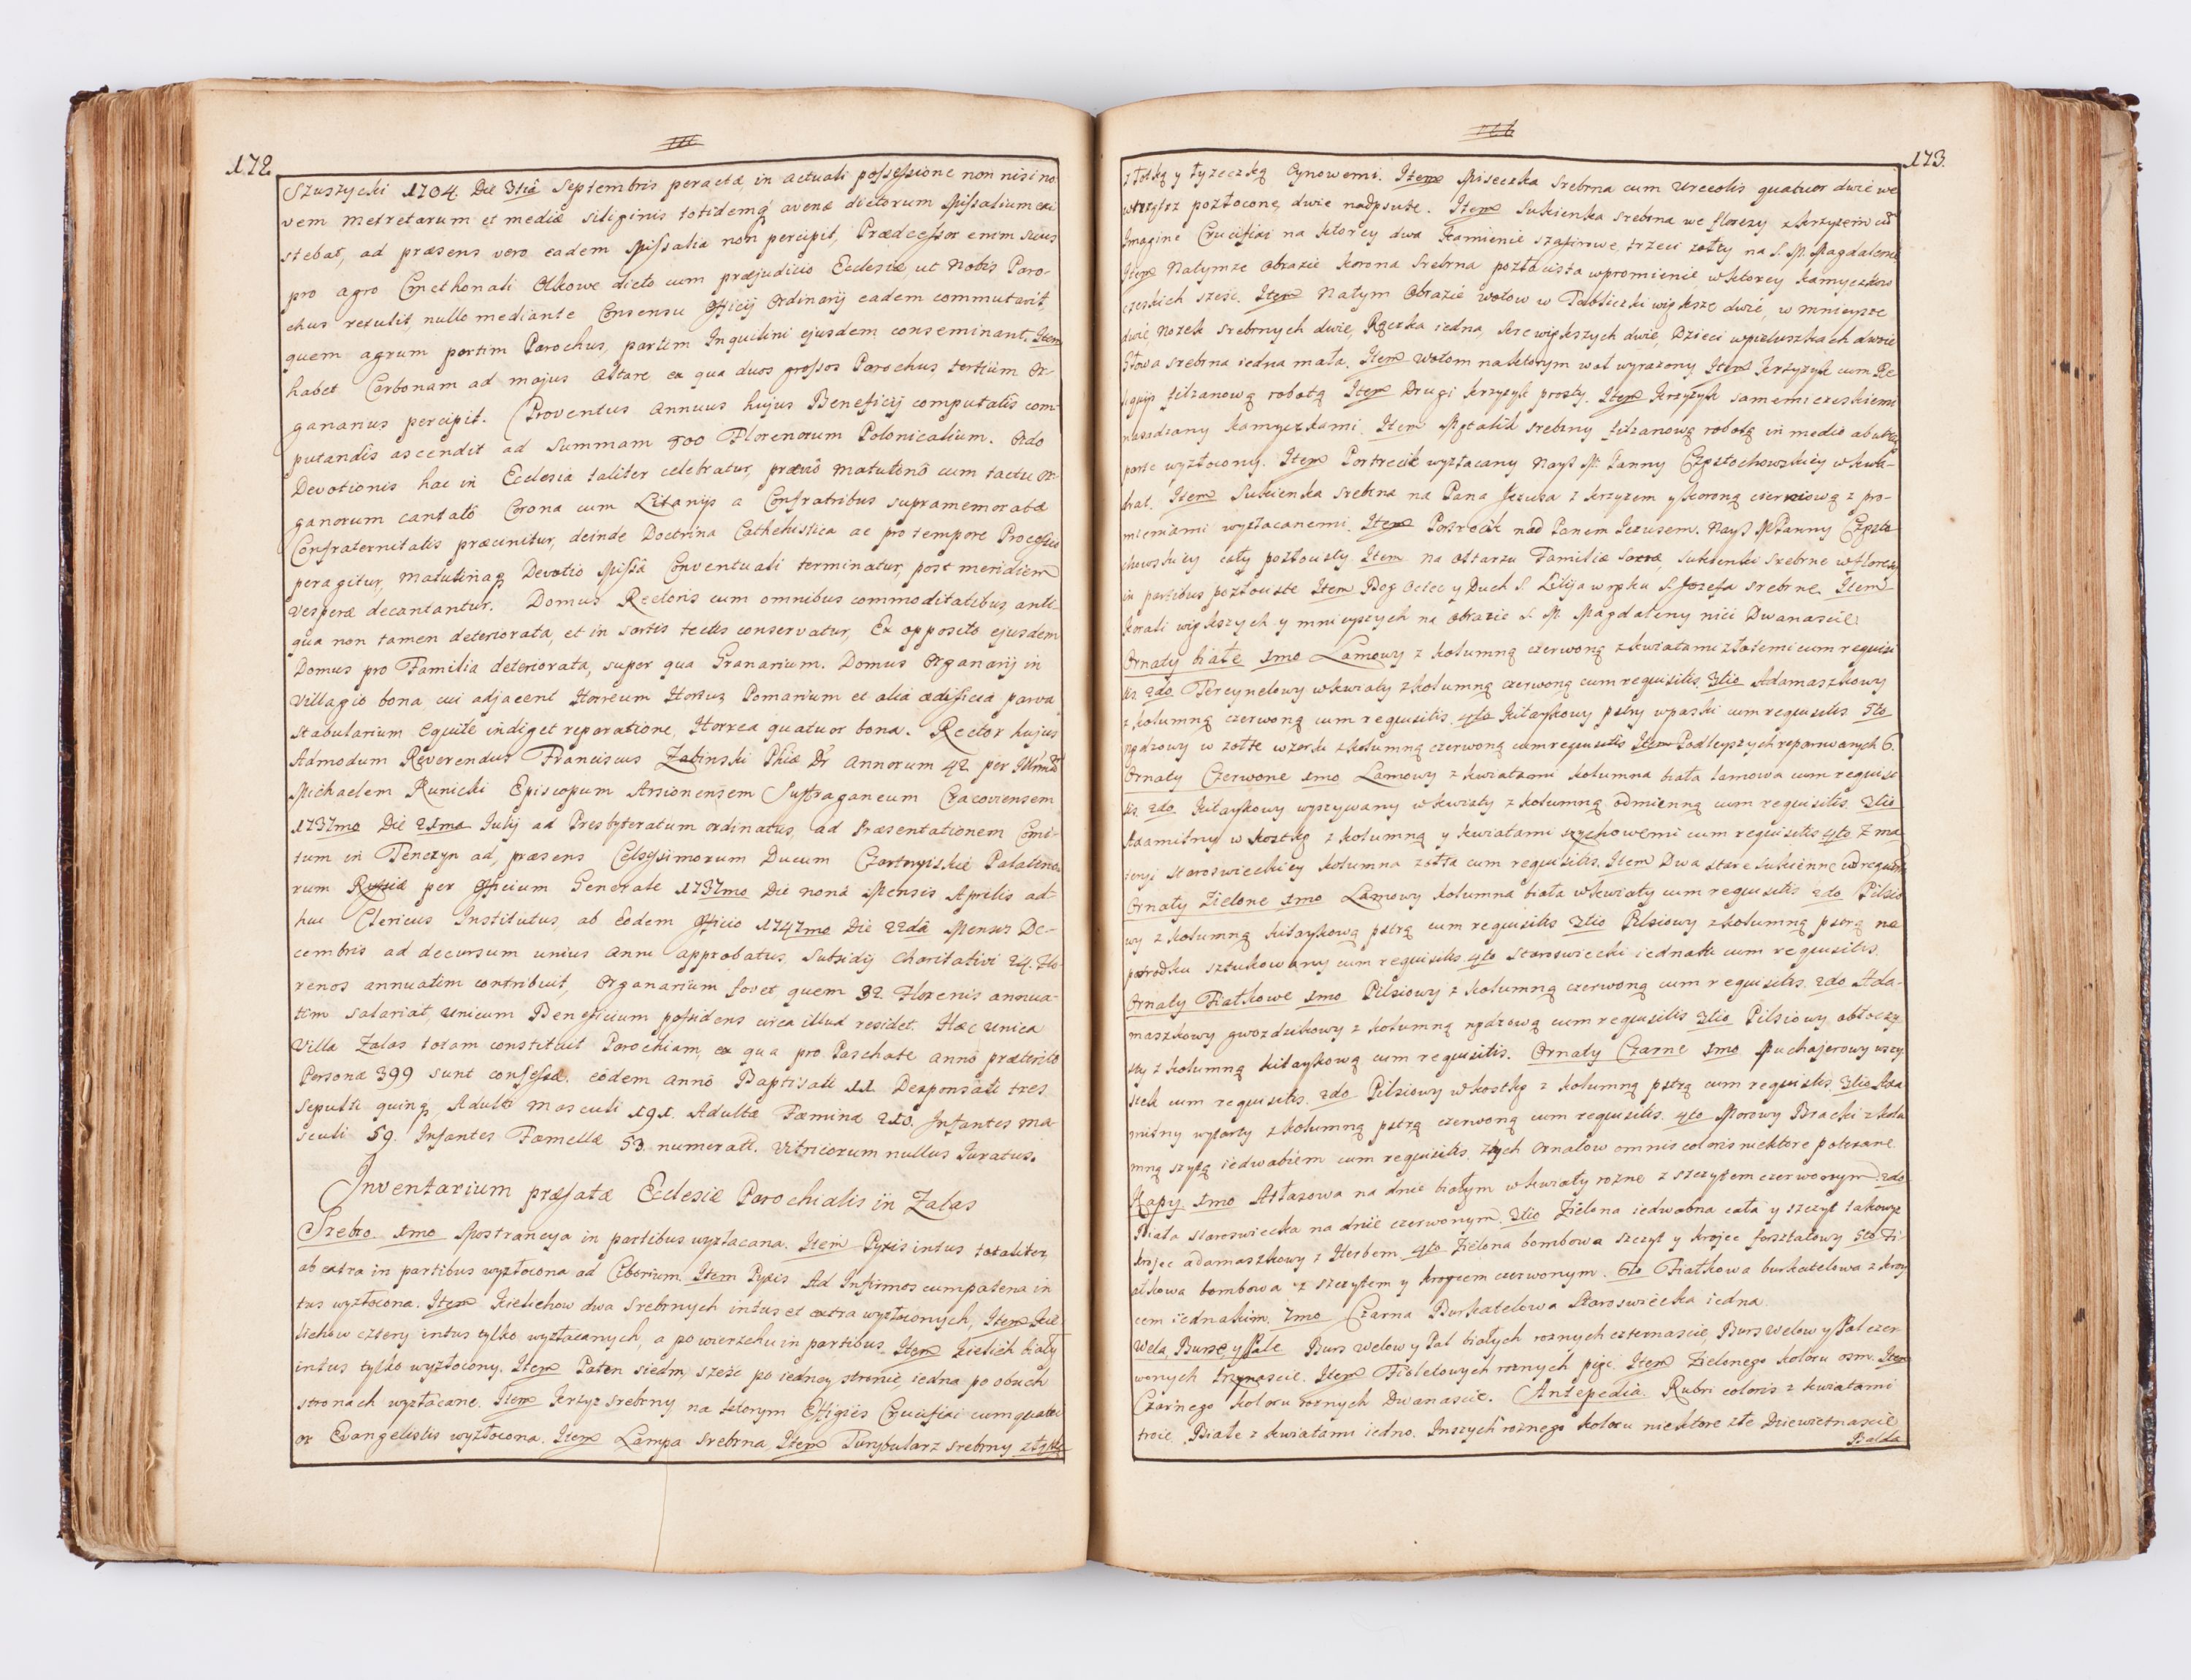 172
Szuszycki 1704. Die 3tia Septembris peracta in actuali possessione non nisi no-
vem metretarum et mediæ siliginis totidemq avenæ dictorum Missalium exi
stebat, ad præsens vero eadem Missalia non percipit, Prædecessor enim suus
pro agro Cmethonali Olkowe dicto cum præjudicio Ecclesiæ ut nobis Paro-
chus retulit, nullo mediante Consensu Officij Ordinarij eadem commutavit,
quem agrum partim Parochus, partim Inquilini ejusdem conseminant. Item
habet Carbonam ad majus Altare ex qua duos grossos Parochus tertium Or-
ganarius percipit. Proventus annuus hujus Beneficij computatis com-
putandis ascendit ad Summam 800 Florenorum Polonicalium. Ordo
Devotionis hac in Ecclesia taliter celebratur, prævio matutinô cum tactu or-
ganorum cantatô Corona cum Litanijs a Confratribus supramemoratæ
Confraternitatis præcinitur, deinde Doctrina Cathehistica ac pro tempore Processio
peragitur, matutinaq Devotio Missâ Conventuali terminatur, post meridiem
vesperæ decantantur. Domus Rectoris cum omnibus commoditatibus anti-
qua non tamen deteriorata, et in sartis tectis conservatur, Ex opposito ejusdem
Domus pro Familia deteriorata, super qua Granarium. Domus Organarij in
Villagio bona cui adjacent Horreum Hortus Pomarium et alia ædificia parva
Stabularium Equile indiget reparatione, Horrea quatuor bona. Rector hujus
Admodum Reverendus Franciscus Zabinski Phiæ Dr annorum 42 per Illmum
Michaelem Kunicki Episcopum Arsionensem Suffraganeum Cracoviensem
1737mo Die 21ma Julij ad Presbyteratum ordinatus, ad Præsentationem Comi-
tum in Tenczyn ad præsens Celsissimorum Ducum Czartoryiskie Palatino-
rum Russiæ per Officium Generale 1737mo Die nonâ Mensis Aprilis ad
huc Clericus Institutus, ab eôdem Officio 1747mo Die 22dâ Mensis De-
cembris ad decursum unius anni approbatus, Subsidij Charitativi 24. Flo-
renos annuatim contribuit, Organarium fovet quem 32 Florenis annua-
tim salariat, unicum Beneficium possidens circa illud residet. Hæc unica
Villa Zalas totam constituit Parochiam, ex qua pro Paschate annô præterito
Personæ 399 sunt confessæ. eôdem annô Baptisati 11. Desponsati tres
Sepulti quinq, Adulti masculi 191. Adultæ Fæminæ 210. Infantes ma-
sculi 59. Infantes Fæmellæ 53 numerati. Vitricorum nullus Juratus.
Inventarium præfatæ Ecclesiæ Parochialis in Zalas
Srebro 1mo Mostrancya in partibus wyzłacana. Item Pyxis intus totaliter,
ab extra in partibus wyzłocona ad Ciborium. Item Pyxis Ad Infirmos cum patena in
tus wyzłocona. Item Kielichow dwa srebrnych intus et extra wyzłoconych, Item Kie-
lichow cztery intus tylko wyzłacanych, a po wierzchu in partibus. Item kielich biały
intus tylko wyzłocony. Item Paten siedm, sześć po iedney stronie, iedna po obuch
stronach wyzłacane. Item Krzyz srebrny na ktorym Effigies Crucifixi cum quatu
or Evangelistis wyzłocona. Item Lampa srebrna Item Turybularz srebrny z łotką
173.
z łotką y łyzeczką Cynowemi. Item Miseczka srebrna cum Urceolis quatuor dwie we
wnątrz pozłocone, dwie nadpsute. Item Sukienka srebrna we florezy z krzyzem cum
Imagine Crucifixi na ktorey dwa kamienie szafirowe, trzeci zołty na S. M. Magdalenie
Item Natymze obrazie korona srebrna pozłocista w promienie, w ktorey kamyczkow
czeskich sześć. Item Natym Obrazie wotow w Tabliczki większe dwie, w mnieysze
dwie, nozek srebrnych dwie, Rączka iedna, serc większych dwie, Dzieci w pieluszkach dwoie
Głowa srebrna iedna mała. Item wotom na ktorym woł wyrazony Item Krzyzyk cum Re
liquijs filzanową robotą Item Drugi krzyzyk prosty. Item Krzyzyk samemi czeskiemi
nasadzany kamyczkami. Item Mętalik srebrny filzanową robotą in medio ab utraq
parte wyzłocony. Item Portrecik wyzłacany Nays M. Panny Częstochowskiey w kwa-
drat. Item Sukienka srebrna na Pana Jezusa z krzyzem y koroną cierniową z pro-
mieniami wyzłacanemi. Item Portrecik nad Panem Jezusem. Nays M Panny Często
chowskiey cały pozłocisty Item na ołtarzu Familiæ Sacræ, sukienki srebrne w florezy
in partibus pozłociste Item Bog Ociec y Duch S. Lilija w ręku S. Jozefa srebrne. Item
korali większych y mnieyszych na obrazie S. M. Magdaleny nici Dwanascie
Ornaty białe 1mo Lamowy z kolumną czerwoną z kwiatami złotemi cum requisi
tis. 2do Tercynelowy w kwiaty z kolumną czerwoną cum requisitis. 3tio Adamaszkowy
z kolumną czerwoną cum requisitis. 4to Kitaykowy pstry w paski cum requisitis 5to
rędzowy w zołte wzorki z kolumną czerwoną cum requisitis Item Podleyszych reparowanych 6.
Ornaty Czerwone 1mo Lamowy z kwiatami kolumna biała lamowa cum requisi
tis. 2do Kitaykowy wyszywany w kwiaty z kolumną odmienną cum requisitis. 3tio
Axamitny w kostkę z kolumną y kwiatami szychowemi cum requisitis 4to Z ma
teryi staroswieckiey kolumna zołta cum requisitis. Item Dwa stare sukienne cum requisitis
Ornaty Zielone 1mo Lamowy kolumna biała w kwiaty cum requisitis 2do Pilsio
wy z kolumną kitaykową pstrą cum requisitis 3tio Pilsiowy z kolumną pstrą na
pośrodku sztukowany cum requisitis. 4to Staroswiecki iednaki cum requisitis.
Ornaty Fiałkowe 1mo Pilsiowy z kolumną czerwoną cum requisitis. 2do Ada-
maszkowy gwozdzikowy z kolumną rędzową cum requisitis 3tio Pilsiowy obłoczy-
sty z kolumną kitaykową cum requisitis. Ornaty Czarne 1mo Muchajerowy wszy
stek cum requisitis. 2do Pilsiowy w kostkę z kolumną pstrą cum requisitis. 3tio Axa
mitny wytarty z kolumną pstrą czerwoną cum requisitis. 4to Morowy Bracki z kolu
mną szytą iedwabiem cum requisitis. Ztych Ornatow omnis coloris niektore potezane
Kapy 1mo Atłasowa na dnie białym w kwiaty rozne z szczytem czerwonym. 2do
Biała staroswiecka na dnie czerwonym. 3tio Zielona iedwabna cała y szczyt takowyz
krojec adamaszkowy z Herbem 4to Zielona bombowa szczyt y krojec forsztatowy 5to Fi-
ałkowa bombowa z szczytem y kroycem czerwonym. 6to Fiałkowa burkatelowa z kroy
cem iednakim. 7mo Czarna Burkatelowa Staroswiecka iedna
Wela, Burse, y Pale Burs Welow y Pal białych roznych czternascie, Burs Welow y Pal czer-
wonych trzynascie. Item Fioletowych roznych pięć. Item Zielonego koloru osm. Item
Czarnego koloru roznych Dwanascie. Antepedia. Rubri coloris z kwiatami
troie. Białe z kwiatami iedno. Inszych roznego koloru niektore złe Dziewietnascie
Balda